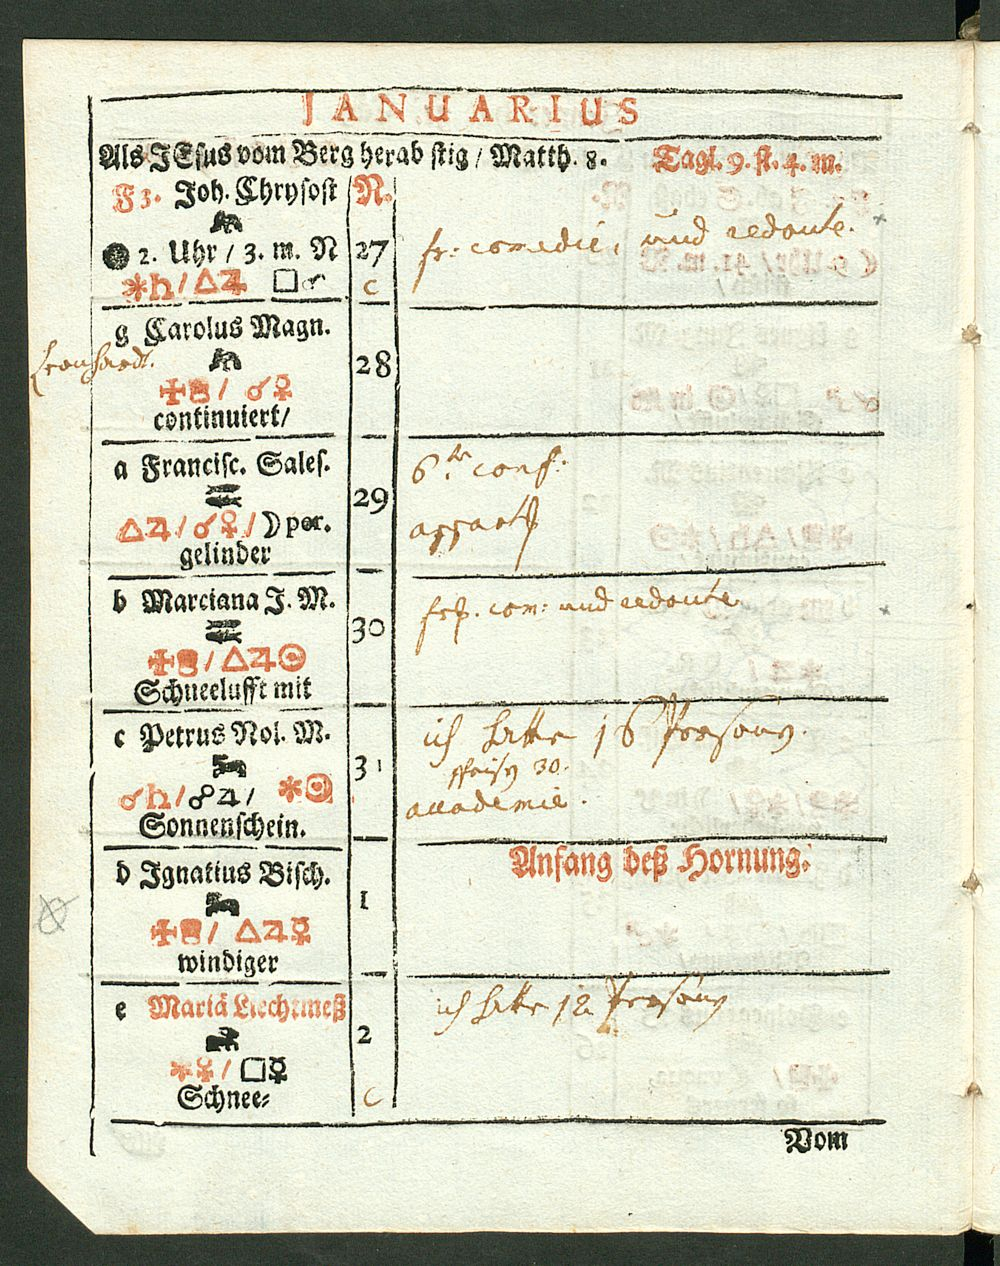 JANUARIUS
Als JEsus vom Berg herab stig / Matth. 8. Tagl. 9. st. 4. m.
F 3. Joh. Chrysost N.
2. Uhr / 3. m. N 27 fr: comedie, und redoute.
✶♄/△♃ □♂ C
g Carolus Magn.
Leonhardt. 28
✠ / ☌♀
continuiert/
a Francisc. Sales. 6te conf:
29
△♃/☌♀/☽per. appart
gelinder
b Marciana J. M. frp. com: und redoute
30
✠ / △♃☉
Schneelufft mit
c Petrus Nol. M. ich hatte 16 Persohn.
31 30.
☌♄/☍♃/ ✶☉ accademie.
Sonnenschein.
Anfang deß Hornung.
d Ignatius Bisch.
1
✠ / △♃☿
windiger
e Mariä Liechtmeß ich hatte 12 Persohn
2
✶♀/□☿
Schnee= C
Vom